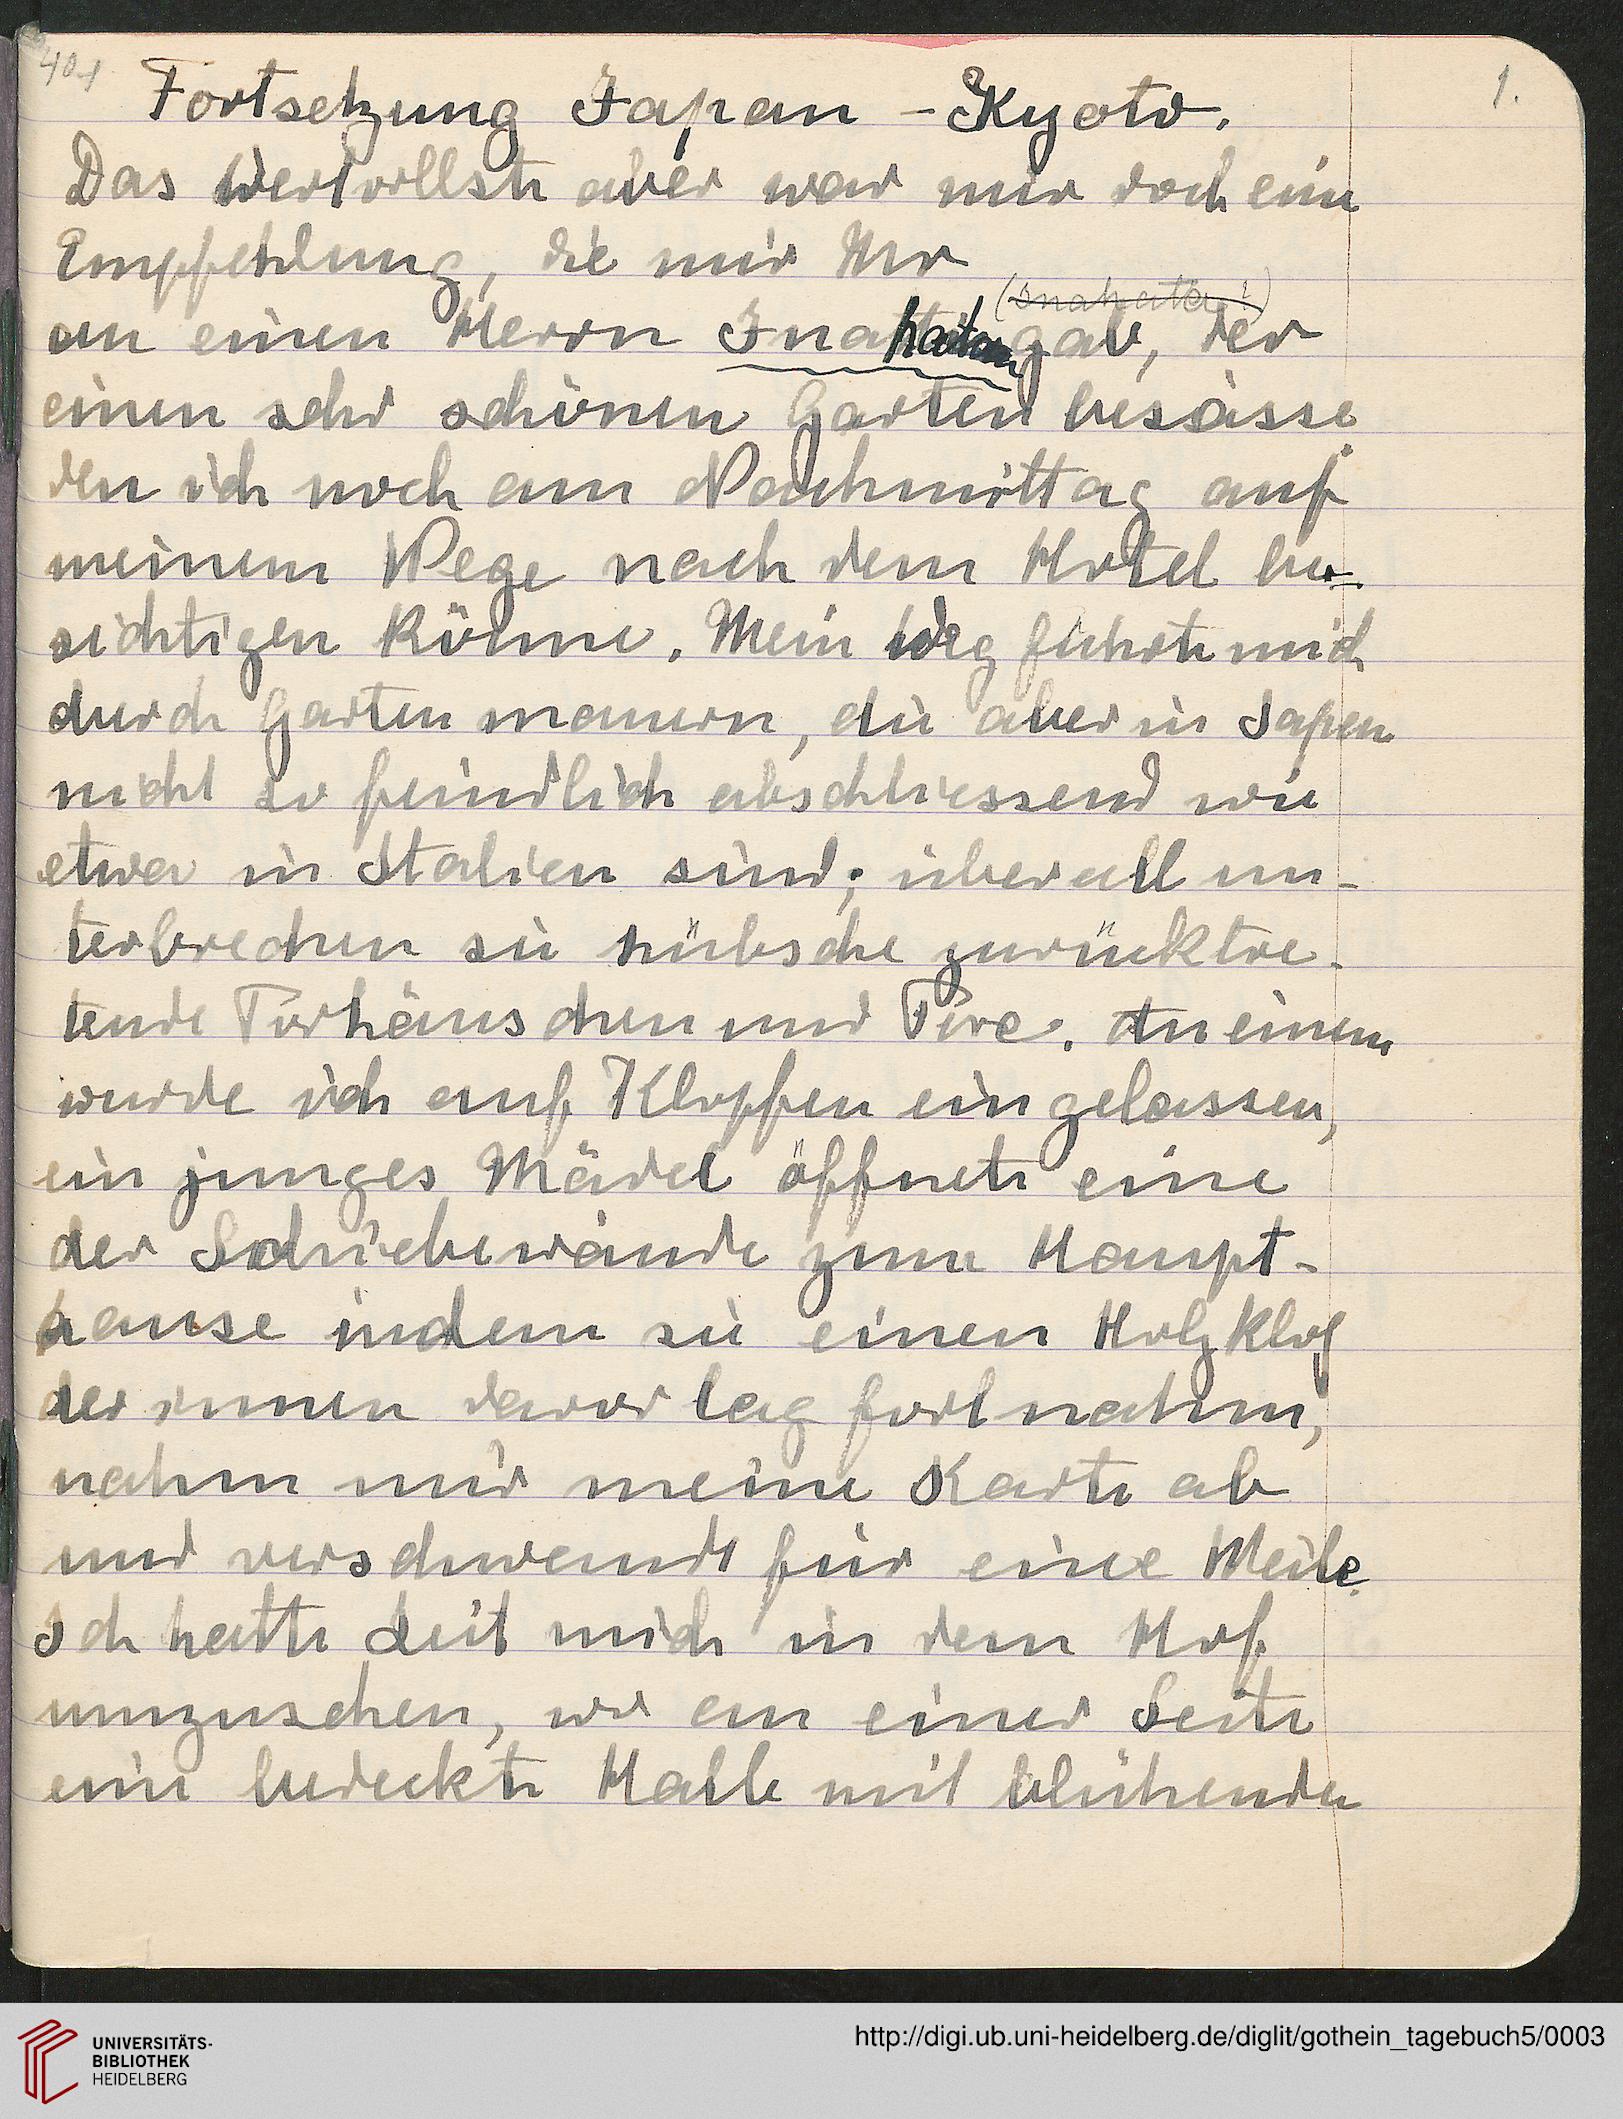 404
1.
Fortsetzung Japan – Kyoto.
Das Wertvollste aber war mir doch eine
Empfehlung, die mir Mr
(Inahata?)
an einen Herrn gab, der
einen sehr schönen Garten besässe
den ich noch am Nachmittag auf
meinem Wege nach dem Hotel be-
sichtigen könne. Mein Weg führte mich
durch Gartenmauern, die aber in Japan
nicht so feindlich abschliessend wie
etwa in Italien sind; überall un-
terbrechen sie hübsche zurücktre-
tende Torhäuschen und Tore. An einem
wurde ich auf Klopfen eingelassen,
ein junges Mädel öffnete eine
der Schiebewände zum Haupt-
hause indem sie einen Holzkloz
der innen davor lag fortnahm,
nahm mir meine Karte ab
und verschwand für eine Weile.
Ich hatte Zeit mich in dem Hof
umzusehen, wo an einer Seite
eine bedeckte Halle mit blühenden
UNIVERSITÄTS-
BIBLIOTHEK
HEIDELBERG
http://digi.ub.uni-heidelberg.de/diglit/gothein_tagebuch5/0003